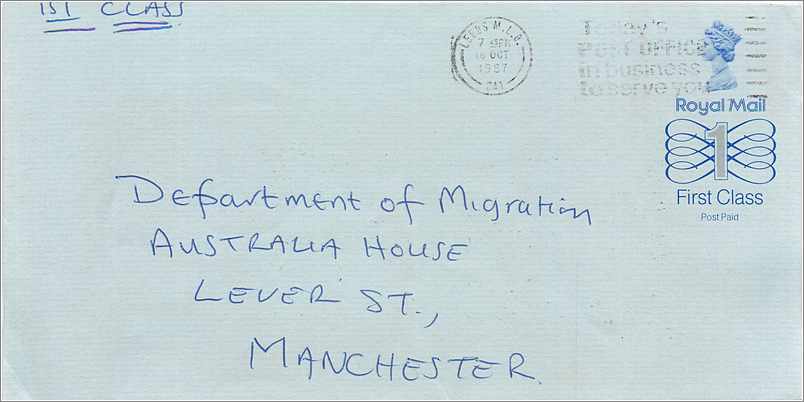 1ST CLASS
LEEDS M.L.O.
7 30PM
16 OCT
1987
Today's
POST OFFICE
in business
to serve you
Royal Mail
1
First Class
Post Paid
Department of Migration
AUSTRALIA HOUSE
LEVER ST.,
MANCHESTER.